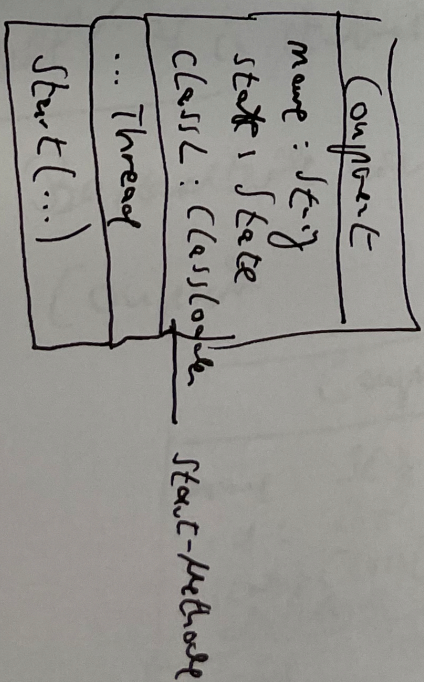 Component
name : String
state : State
classL : ClassLoader
... Thread
Start (...)
Start-Methode